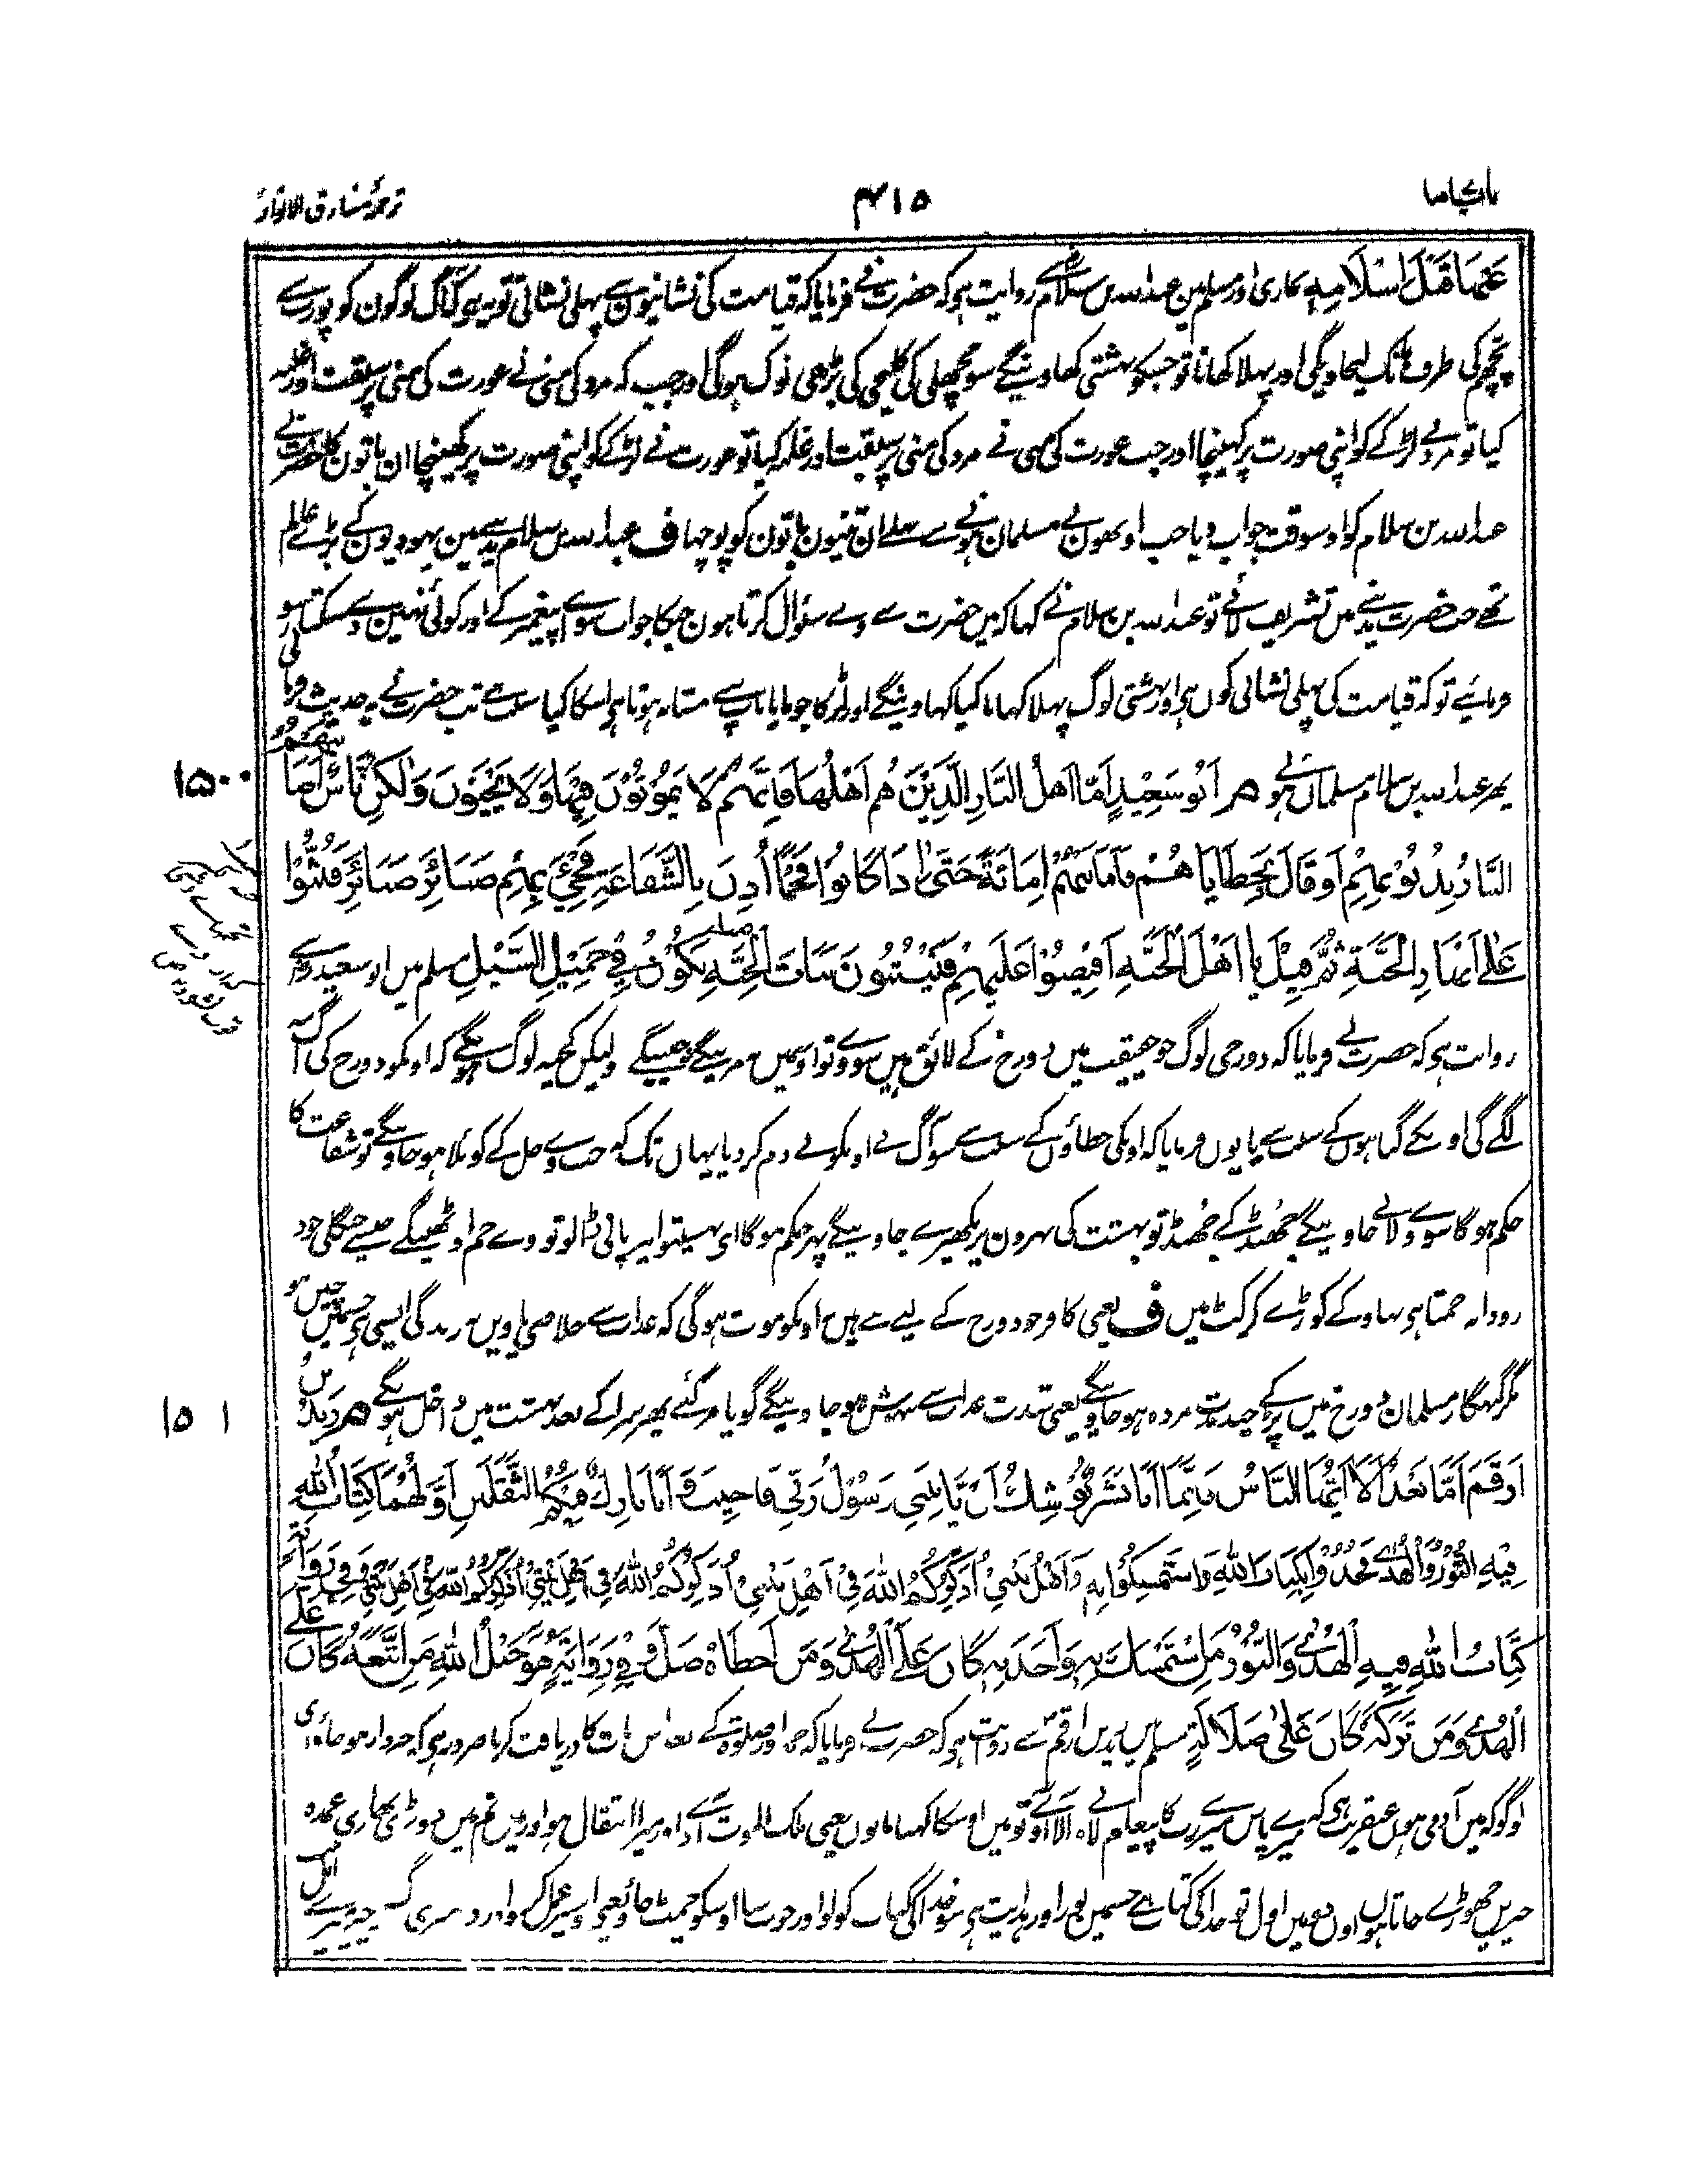 ترجمہ مشارق الانوار
۴۱۵
عَنْهَا قَبْلَ اِسْلَامِهٖ بخاری اور مسلم مین عبد اللہ بن سلام سے روایت ہی کہ حضرت نے فرمایا کہ قیامت کی نشانیون سے پہلی نشانی تو یہ ہی کہ آگ لوگون کو پورب سے
پچھم کی طرف ہانک لیجاویگی اور پہلا کھانا تو جسکو بہشتی کھاوینگے سو مچھلی کی کلیجی کی بڑھی نوک ہوگی اور جب کہ مرد کی منی نے عورت کی منی پر سبقت اور غلبہ
کیا تو مرد نے لڑکے کو اپنی صورت پر کھینچا اور جب عورت کی منی نے مرد کی منی پر سبقت اور غلبہ کیا تو عورت نے لڑکے کو اپنی صورت پر کھینچا ان باتون کا حضرت نے
عبد اللہ بن سلام کو اوسوقت جواب دیا جب اونھون نے مسلمان ہونے سے پہلے ان تینون باتون کو پوچھا ف عبد اللہ بن سلام مدینے مین یہودیون کے بڑے عالم
تھے جب حضرت مدینے میں تشریف لائے تو عبد اللہ بن سلام نے کہا کہ میں حضرت سے وے سؤال کرتا ہون جنکا جواب سواے پیغمبر کے اور کوئی نہین دے سکتا سو
فرمائیے تو کہ قیامت کی پہلی نشانی کون ہی اور بہشتی لوگ پہلا کھانا کیا کھاوینگے اور لڑکا جو ما یا باپ سے مشابہ ہوتا ہی اسکا کیا سبب ہے تب حضرت نے یہ حدیث فرمائی
پھر عبد اللہ بن سلام مسلمان ہوئے ھر اَبُو سَعِیْدٍ اَمَّا اَهْلُ النَّارِ الَّذِیْنَ هُمْ اَهْلُهَا فَاِنَّهُمْ لَا یَمُوْتُوْنَ فِیْهَا وَلَا یَحْیَوْنَ وَلٰکِنْ نَاسٌ اَصَابَتْهُمُ
۱۵۰۰
النَّارُ بِذُنُوْبِهِمْ اَوْ قَالَ بِخَطَایَاهُمْ فَاَمَاتَتْهُمْ اِمَاتَةً حَتّٰی اِذَا کَانُوْا فَحْمًا اُذِنَ بِالشَّفَاعَةِ فَجِیْئَ بِهِمْ ضَبَائِرَ ضَبَائِرَ فَبُثُّوْا
عَلٰی اَنْهَارِ الْجَنَّةِ ثُمَّ قِیْلَ یَا اَهْلَ الْجَنَّةِ اَفِیْضُوْا عَلَیْهِمْ فَیَنْبُتُوْنَ نَبَاتَ الْحِبَّةِ تَکُوْنُ فِیْ حَمِیْلِ السَّیْلِ مسلم میں ابو سعید سے
روایت ہی کہ حضرت نے فرمایا کہ دوزخی لوگ جو حقیقت میں دوزخ کے لائق ہیں سو وے تو اوسمیں نہ مرینگے نہ جیینگے ولیکن کچھ لوگ ہونگے کہ اونکو دوزخ کی آگ
لگے گی اونکے گناہوں کے سبب سے یا یوں فرمایا کہ اونکی خطاؤں کے سبب سے سو آگ نے اونکو بے دم کر دیا یہاں تک کہ جب وے جل کے کوئلا ہو جاوینگے تو شفاعت کا
حکم ہوگا سو وے لائے جاوینگے جھنڈ کے جھنڈ تو بہشت کی نہرون پر بکھیرے جاوینگے پھر حکم ہوگا ای بہشتیو انپر پانی ڈالو تو وے جم اوٹھینگے جیسے جنگلی خود
رودانہ جمتا ہی بہاو کے کوڑے کرکٹ میں ف یعنی کافر جو دوزخ کے لیے بنے ہیں اونکو نہ موت ہوگی کہ عذاب سے خلاصی پاویں نہ زندگی ایسی ہی جسمیں چین ہو
مگر گنہگار مسلمان دوزخ میں پڑکے چند مدت مردہ ہو جاوینگے یعنی شدت عذاب سے بیہوش ہو جاوینگے گویا مر گئے پھر سزا کے بعد بہشت میں داخل ہونگے ھر زَیْدُ بْنُ
۱۵۰۱
اَرْقَمَ اَمَّا بَعْدُ اَلَا اَیُّهَا النَّاسُ فَاِنَّمَا اَنَا بَشَرٌ یُوْشِكُ اَنْ یَّأْتِیَنِیْ رَسُوْلُ رَبِّیْ فَاُجِیْبَ وَاَنَا تَارِكٌ فِیْکُمُ الثَّقَلَیْنِ اَوَّلُهُمَا کِتَابُ اللهِ
فِیْهِ النُّوْرُ وَالْهُدٰی فَخُذُوْا بِکِتَابِ اللهِ وَاسْتَمْسِکُوْا بِهٖ وَاَهْلُ بَیْتِیْ اُذَکِّرُکُمُ اللهَ فِیْ اَهْلِ بَیْتِیْ اُذَکِّرُکُمُ اللهَ فِیْ اَهْلِ بَیْتِیْ اُذَکِّرُکُمُ اللهَ فِیْ اَهْلِ بَیْتِیْ وَفِیْ رِوَایَةٍ
کِتَابُ اللهِ فِیْهِ الْهُدٰی وَالنُّوْرُ مَنِ اسْتَمْسَكَ بِهٖ وَاَخَذَ بِهٖ کَانَ عَلَی الْهُدٰی وَمَنْ اَخْطَاَهُ ضَلَّ وَفِیْ رِوَایَةٍ هُوَ حَبْلُ اللهِ مَنِ اتَّبَعَهٗ کَانَ عَلٰی
الْهُدٰی وَمَنْ تَرَکَهٗ کَانَ عَلٰی ضَلَالَةٍ مسلم میں زید بن ارقم سے روایت ہی کہ حضرت نے فرمایا کہ حمد اور صلوۃ کے بعد اس بات کا دریافت کرنا ضرور ہی کہ خبردار ہو جاؤ ای
لوگو کہ میں آدمی ہوں عنقریب ہی کہ میرے پاس میرے رب کا پیغام لانے والا آوے تو میں اوسکا کہنا مانوں یعنی ملک الموت آوے اور میرا انتقال ہو اور میں تم میں دو بڑی بھاری عمدہ
چیزیں چھوڑے جاتا ہوں اون دو میں اول تو خدا کی کتاب ہے جسمیں نور اور ہدایت ہی سو خدا کی کتاب کو لو اور خوب سا اوسکو چمٹ جاؤ یعنی اوسپر عمل کرو اور دوسری چیز میرے اہل بیت